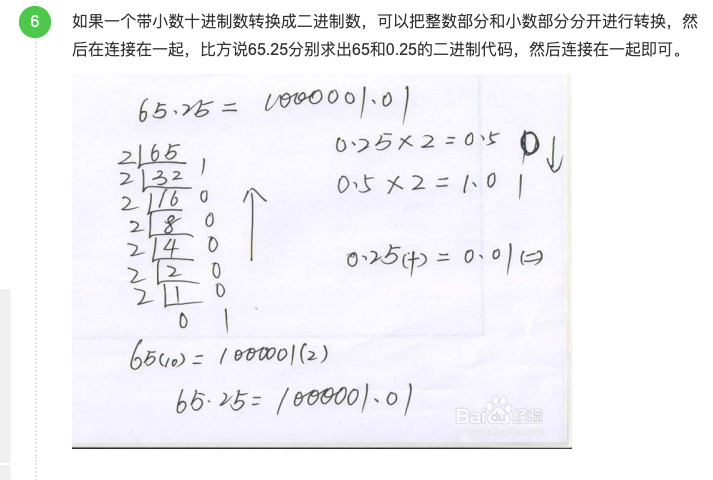 6
如果一个带小数十进制数转换成二进制数，可以把整数部分和小数部分分开进行转换，然
后在连接在一起，比方说65.25分别求出65和0.25的二进制代码，然后连接在一起即可。
65.25 = 1000001.01
2 65
2 32 1
2 16 0
2 8 0
2 4 0
2 2 0
2 1 0
0 1
0.25×2=0.5 0 ↓
0.5×2=1.0 1
0.25(十) = 0.01(二)
65(10) = 1000001(2)
65.25 = 1000001.01
Baidu经验